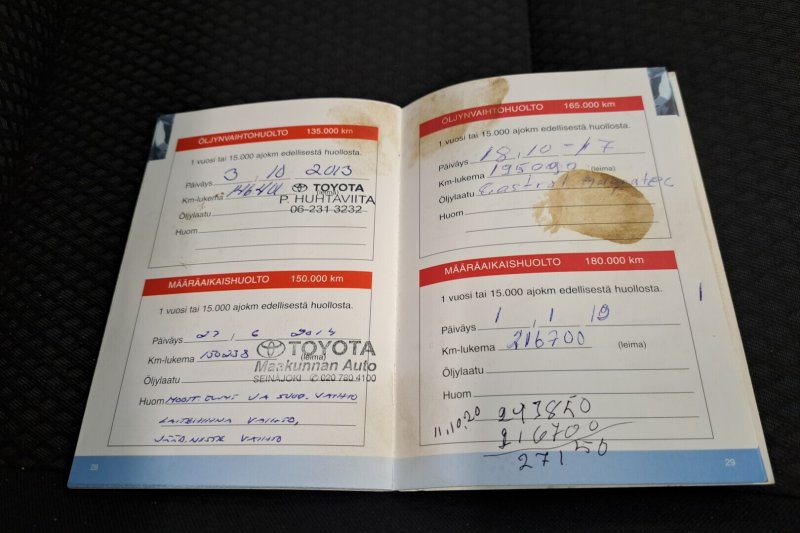 ÖLJYNVAIHTOHUOLTO 135.000 km
1 vuosi tai 15.000 ajokm edellisestä huollosta.
Päiväys 3, 10 2013
Km-lukema 146401 (leima)
TOYOTA
P. HUHTAVIITA
06-231 3232
Öljylaatu
Huom
MÄÄRÄAIKAISHUOLTO 150.000 km
1 vuosi tai 15.000 ajokm edellisestä huollosta.
Päiväys 27, 6 2014
Km-lukema 150238 (leima)
TOYOTA
Maakunnan Auto
SEINÄJOKI ✆ 020 780 4100
Öljylaatu
Huom MOOT. ÖLJY JA SUOD. VAIHTO
VAIHTO,
JÄÄD. NESTE VAIHTO
28
ÖLJYNVAIHTOHUOLTO 165.000 km
1 vuosi tai 15.000 ajokm edellisestä huollosta.
Päiväys 18, 10 - 17
Km-lukema 195090 (leima)
Öljylaatu Castrol Magnatec
Huom
MÄÄRÄAIKAISHUOLTO 180.000 km
1 vuosi tai 15.000 ajokm edellisestä huollosta.
Päiväys 1, 1, 19
Km-lukema 216700 (leima)
Öljylaatu
Huom
11.10.20 243850
216700
27150
29